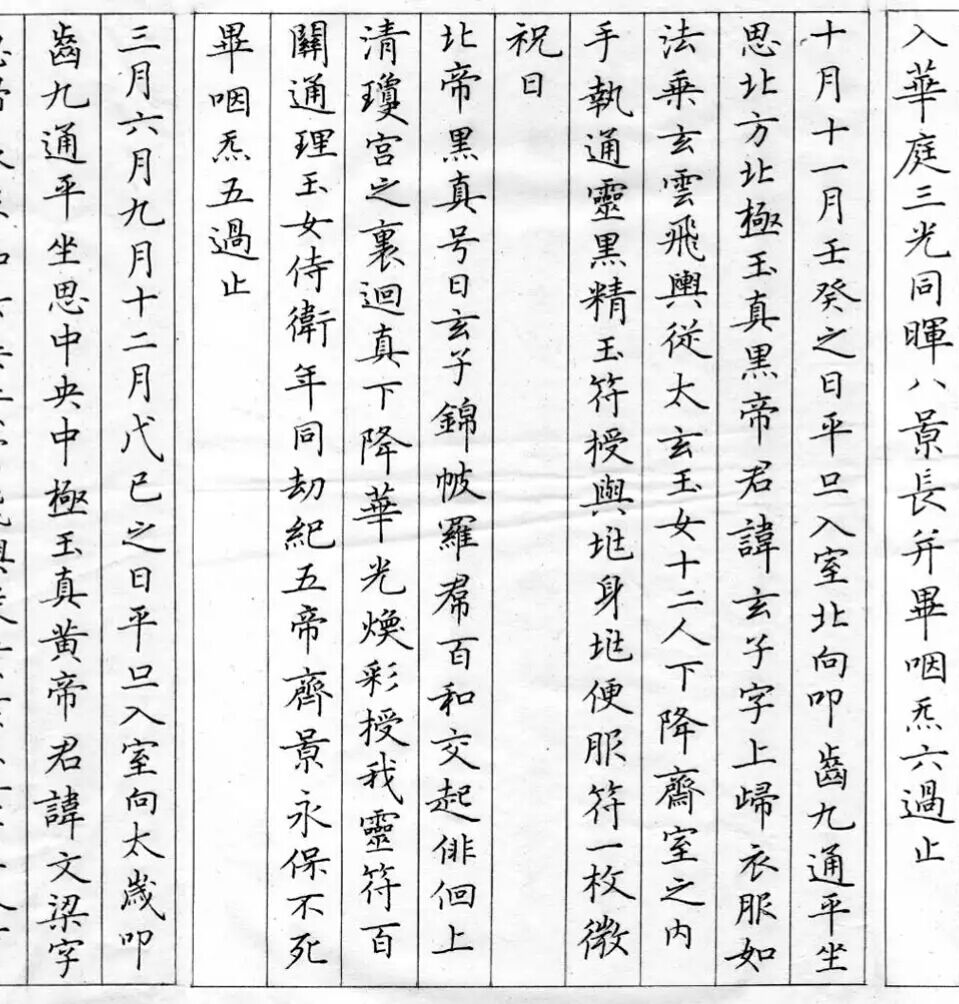 入華庭三光同暉八景長并畢咽炁六過止
十月十一月壬癸之日平旦入室北向叩齒九通平坐
思北方北極玉真黑帝君諱玄子字上歸衣服如
法乘玄雲飛輿從太玄玉女十二人下降齋室之內
手執通靈黑精玉符授與兆身兆便服符一枚微
祝曰
北帝黑真号曰玄子錦帔羅帬百和交起俳佪上
清瓊宮之裏迴真下降華光煥彩授我靈符百
關通理玉女侍衛年同劫紀五帝齊景永保不死
畢咽炁五過止
三月六月九月十二月戊己之日平旦入室向太歲叩
齒九通平坐思中央中極玉真黃帝君諱文梁字